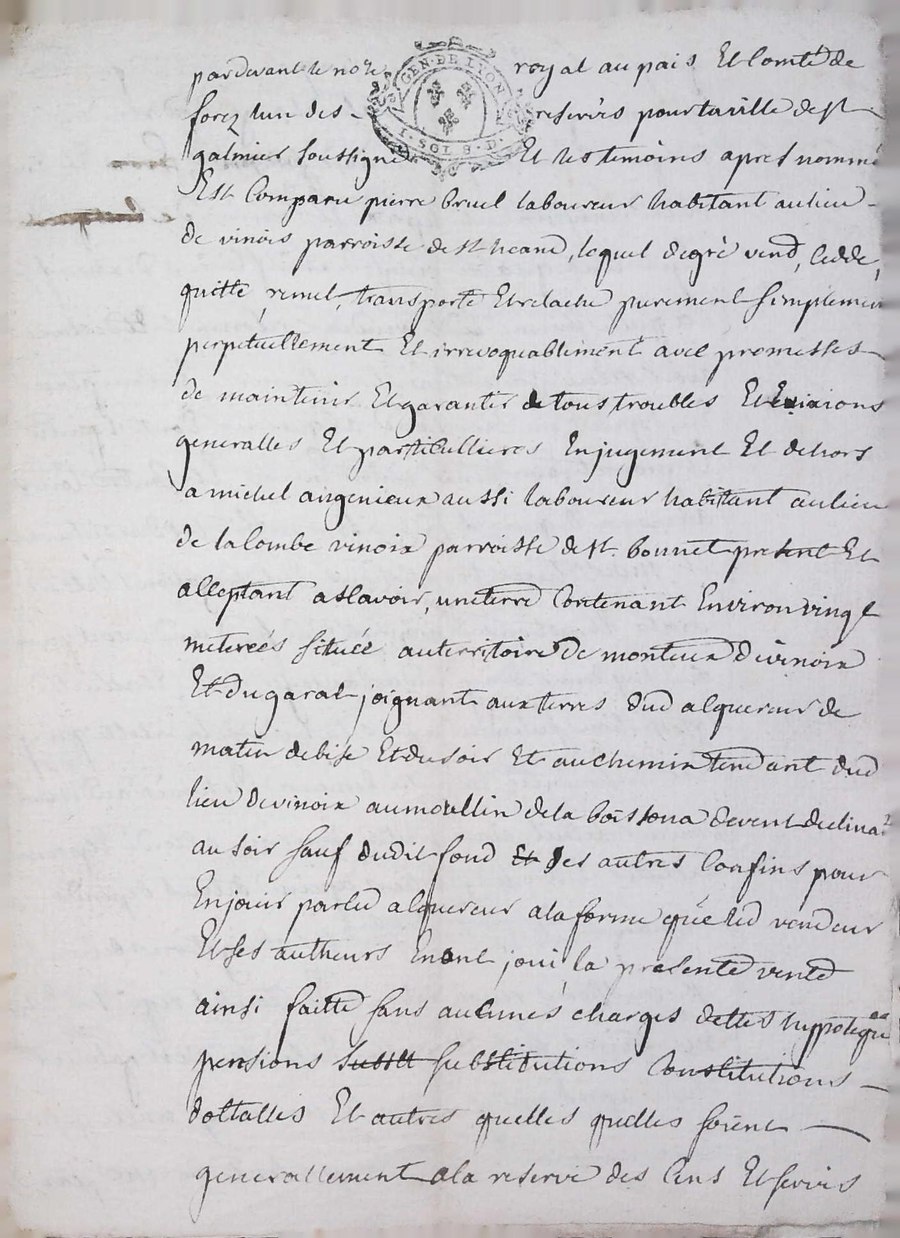 pardevant le no.re royal au pais Et Comté de
GEN · DE LYON
I · SOL 8 · D
forez lun des - reservés pour la ville de St
galmier soussigné Et les temoins apres nommé
Est Comparu pierre bruel laboureur habitant au lieu -
de vinois parroisse de St heand, lequel de gré vend, Cedde,
quitte, remet, transporte Et relache purement simplement
perpetuellement Et irrevoquablement avec promesses
de maintenir Et garantir de tous troubles Et Evixions
generalles Et particullieres En jugement Et dehors
a michel angenieux aussi laboureur habitant au lieu
de la Combe vinoix parroisse de St. bonnet present Et
acceptant a scavoir, une terre Contenant Environ vingt
meterées située au territoire de monteux de vinoix
Et du garat joignant aux terres dud acquereur de
matin de bise Et du soir Et au chemin tendant dud
lieu de vinoix au moullin de la boissona de vent declinat
au soir sauf dudit fond Et des autres Confins pour
En jouir par led acquereur a la forme que led vendeur
Et ses autheurs En ont joui la presente vente
ainsi faitte sans aucunes charges dettes hyppoteques
pensions substt substitutions Constitutions -
dottalles Et autres quelles quelles soient -
generallement a la reserve des Cens Et servis